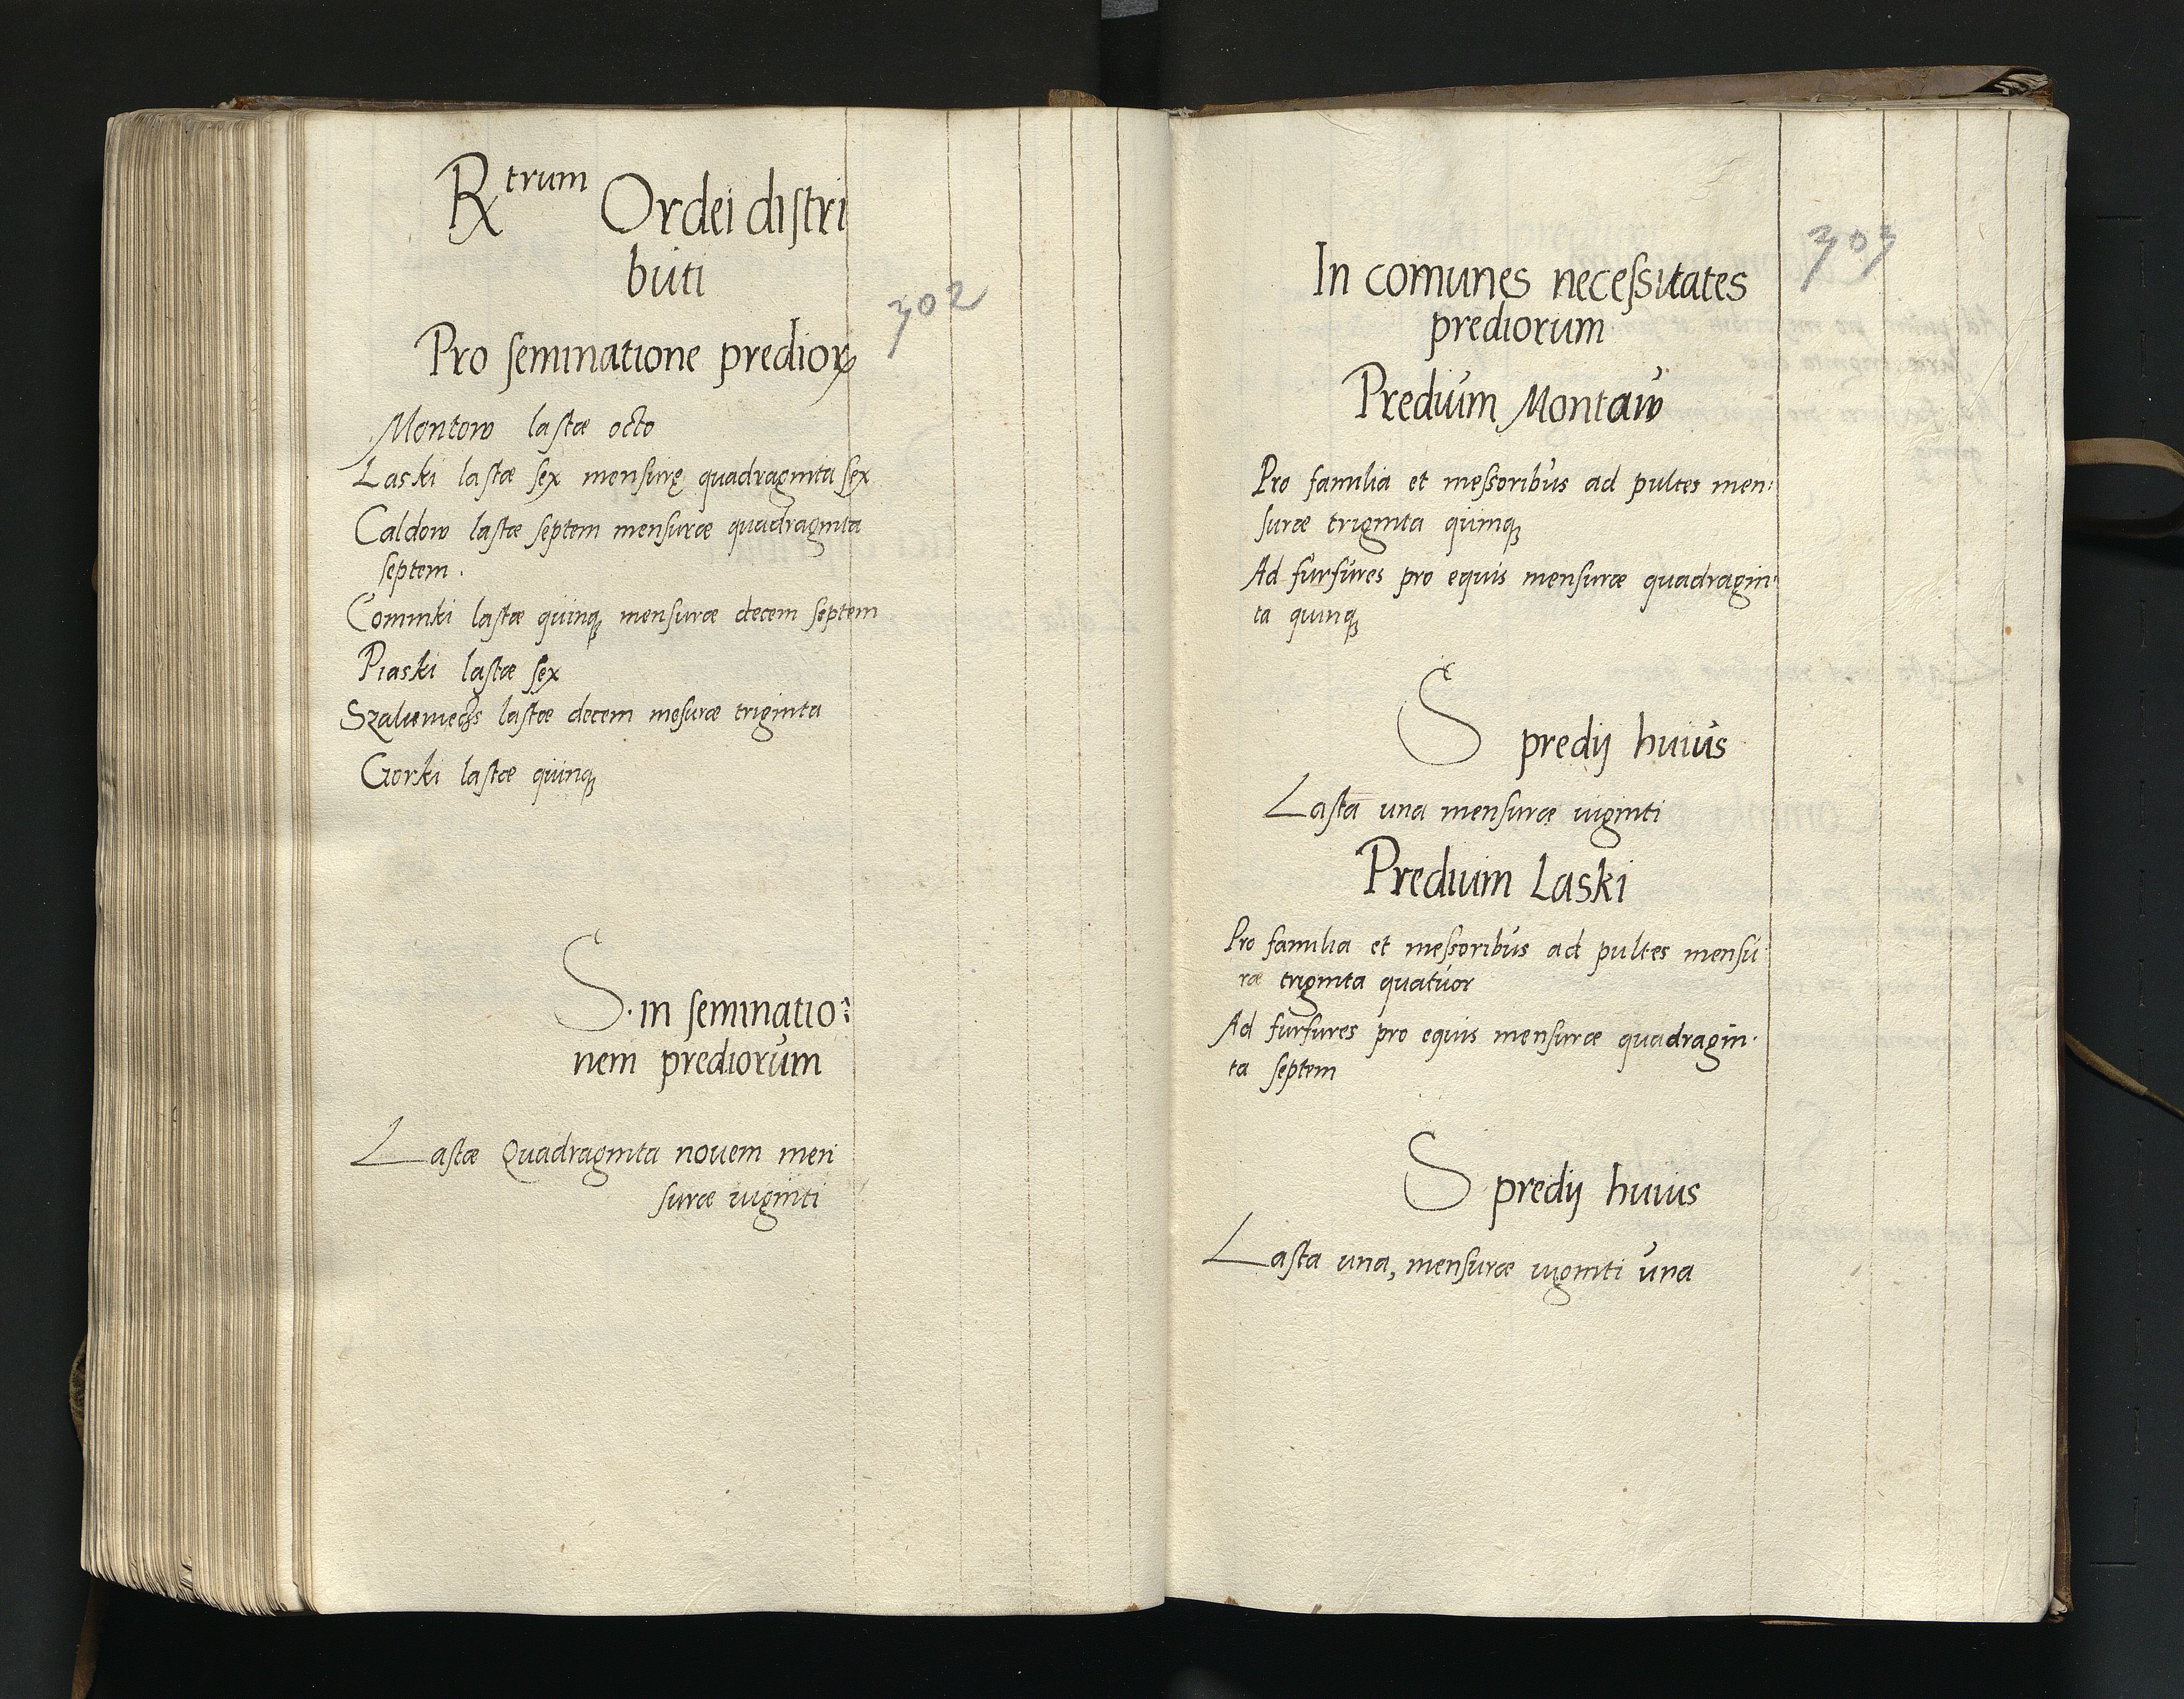 Rtrum Ordei distri
buti
302
Pro seminatione predior
Montow lastæ octo
Laski lastæ sex mensurę quadraginta sex
Caldow lastæ septem mensuræ quadraginta
septem .
Cominki lastæ quinq mensuræ decem septem
Piaski lastæ sex
lastæ decem mesuræ triginta
Gorki lastæ quinq
S. in seminatio:
nem prediorum
Lastæ Quadraginta nouem men
suræ uiginti
303
In comunes necessitates
prediorum
Predium Montaw
Pro familia et messoribus ad pultes men:
suræ triginta quinq
Ad furfures pro equis mensuræ quadragin:
ta quinq
S predij huius
Lasta una mensuræ uiginti
Predium Laski
Pro familia et messoribus ad pultes mensu
ræ triginta quatuor
Ad furfures pro equis mensuræ quadragin.
ta septem
S predij huius
Lasta una, mensuræ uiginti una